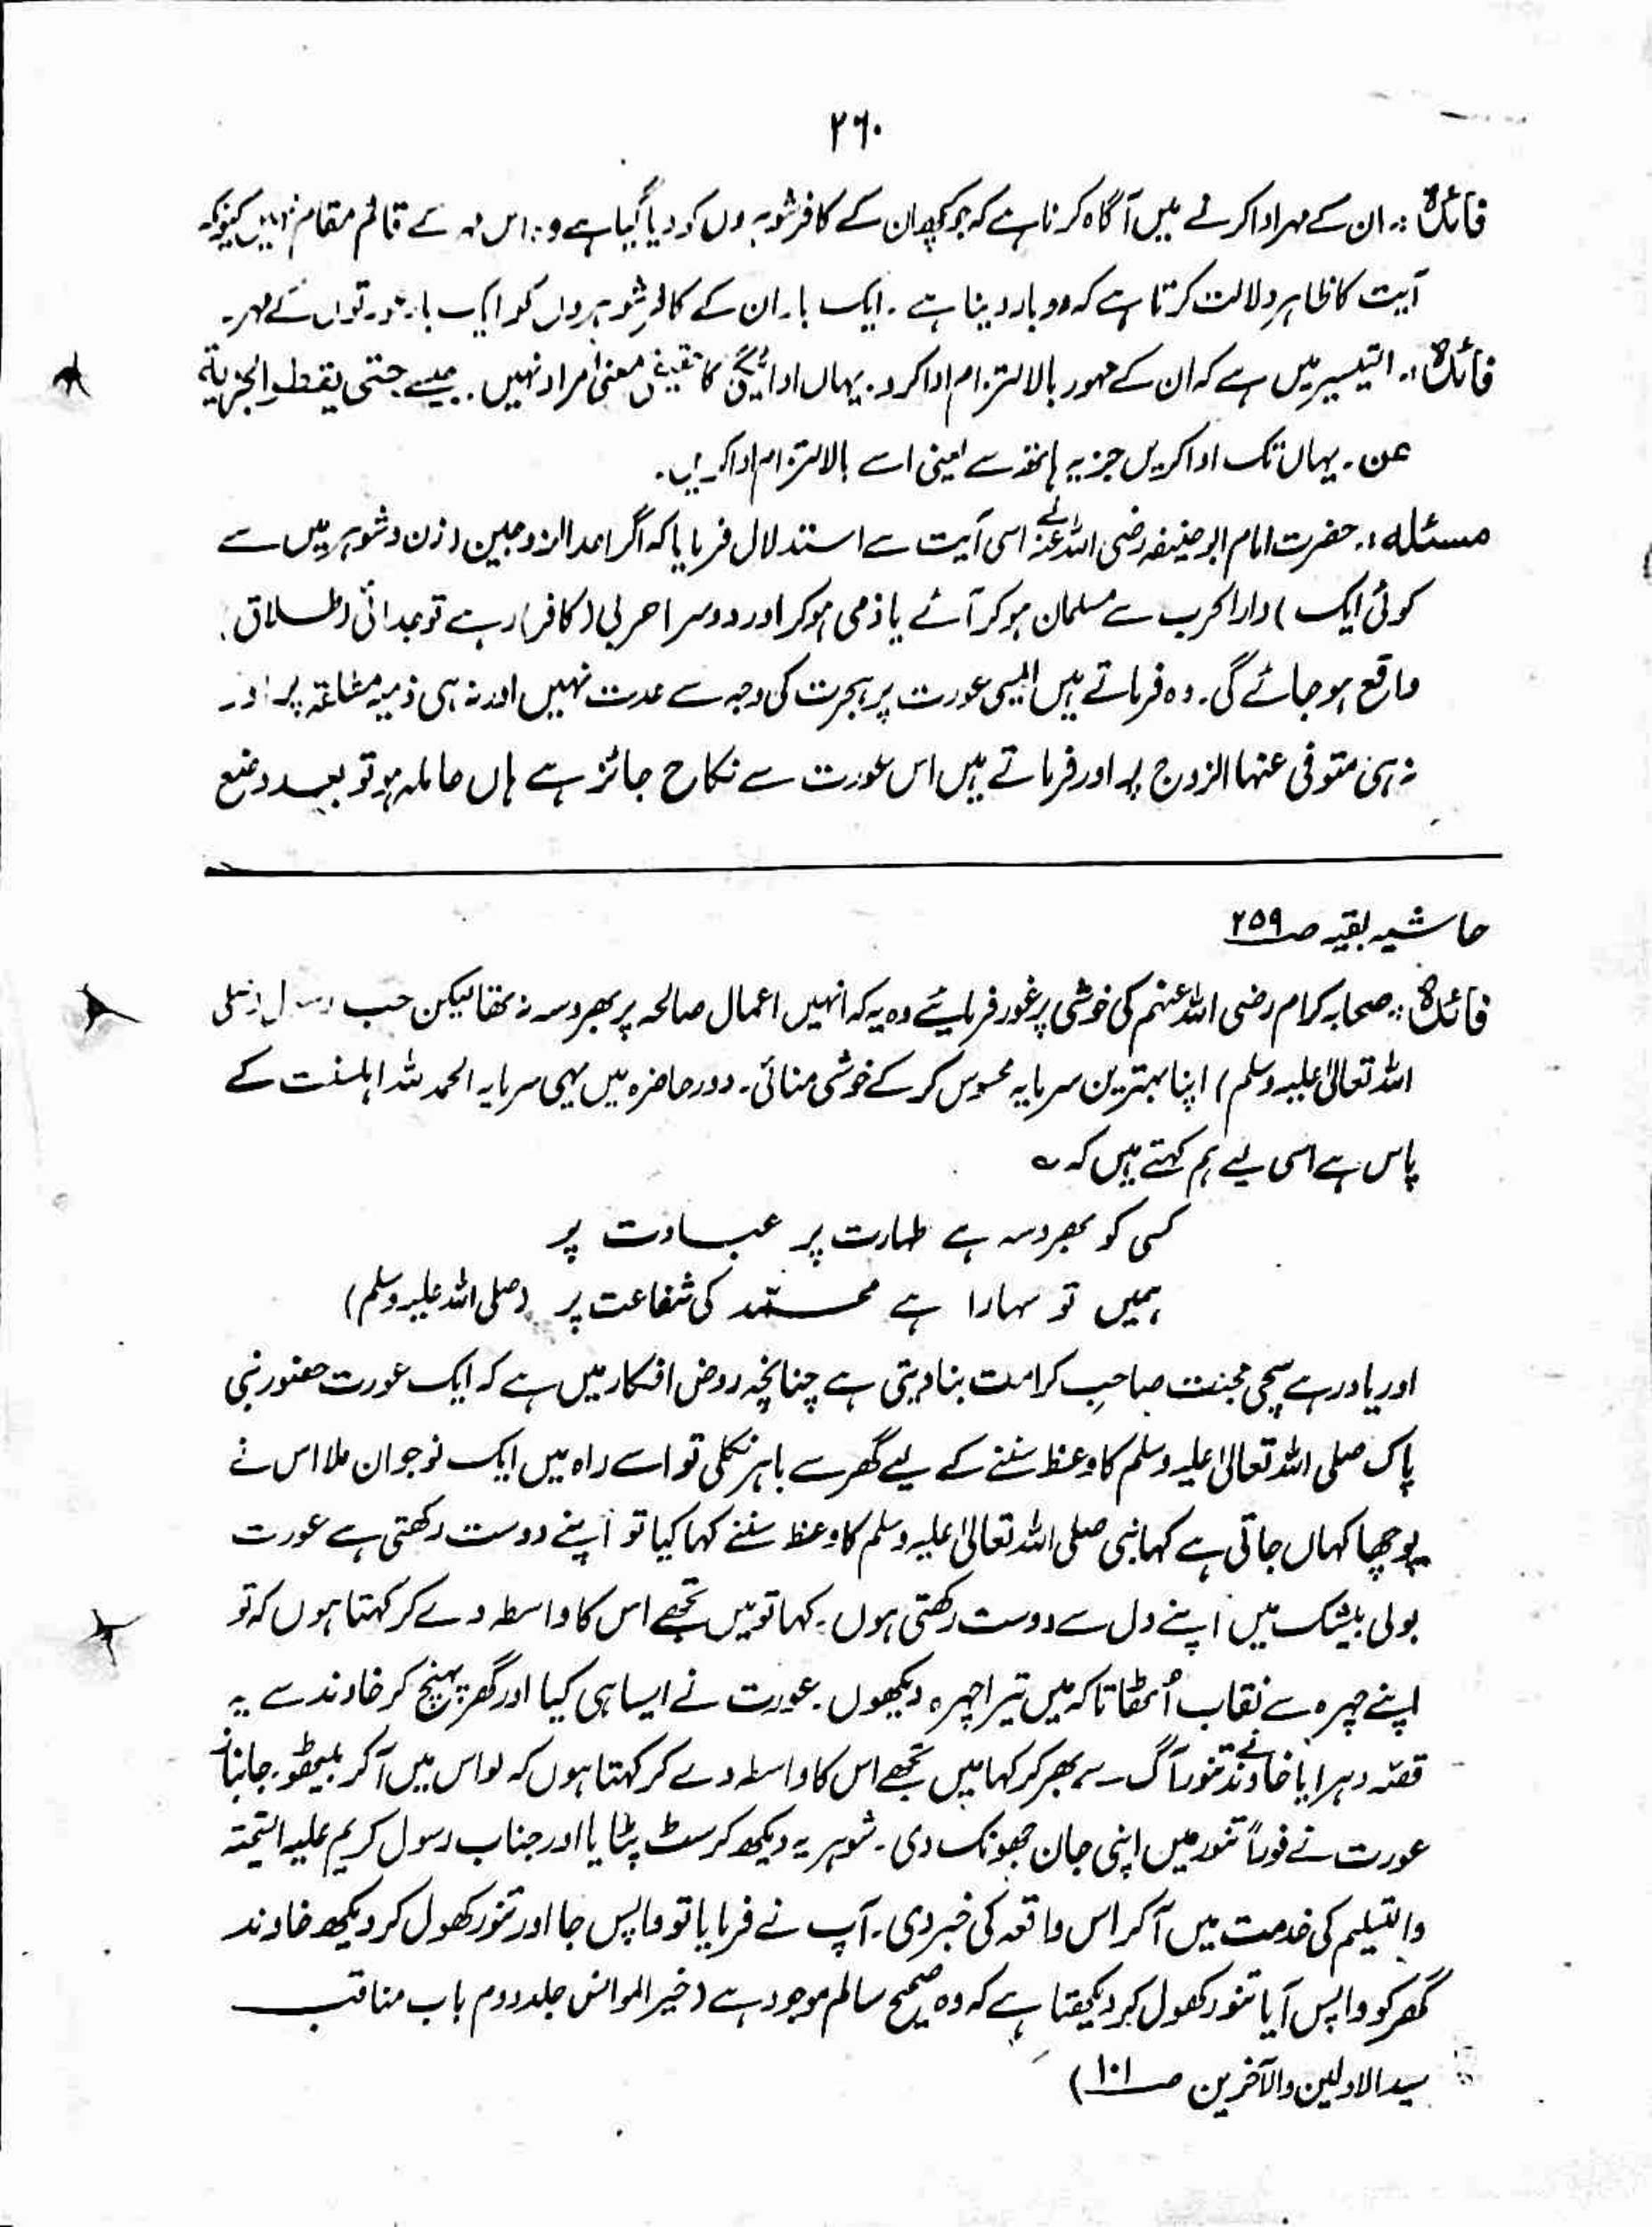 ۲۶۰
فائدہ :۔ ان کے مہر ادا کرنے میں آگاہ کرنا ہے کہ جو کچھ ان کے کافر شوہروں کو دیا گیا ہے وہ اس مہر کے قائم مقام نہیں کیونکہ
آیت کا ظاہر دلالت کرتا ہے کہ دو بار دینا ہے ۔ ایک بار ان کے کافر شوہروں کو ایک بار عورتوں کے مہر۔
فائدہ :۔ التیسیر میں ہے کہ ان کے مہور بالالتزام ادا کرو ۔ یہاں ادائیگی کا حقیقی معنیٰ مراد نہیں ۔ جیسے حتی یعطو الجزیۃ
عن ۔ یہاں تک ادا کریں جزیہ ہاتھ سے یعنی اسے بالالتزام ادا کریں ۔
مسئلہ :۔ حضرت امام ابو حنیفہ رضی اللہ عنہ نے اسی آیت سے استدلال فرمایا کہ اگر احد الزوجین (زن و شوہر میں سے
کوئی ایک) دار الحرب سے مسلمان ہو کر آئے یا ذمی ہو کر اور دوسرا حربی (کافر) رہے تو جدائی (طلاق)
واقع ہو جائے گی ۔ وہ فرماتے ہیں ایسی عورت پر ہجرت کی وجہ سے عدت نہیں اور نہ ہی ذمیہ مطلقہ پر اور
نہ ہی متوفی عنہا الزوج پر اور فرماتے ہیں اس عورت سے نکاح جائز ہے ہاں حاملہ ہو تو بعد وضع
حاشیہ بقیہ صـ۲۵۹
فائدہ :۔ صحابہ کرام رضی اللہ عنہم کی خوشی پر غور فرمایئے وہ یہ کہ انہیں اعمال صالحہ پر بھروسہ نہ تھا لیکن حب رسول (صلی
اللہ تعالیٰ علیہ وسلم) اپنا بہترین سرمایہ محسوس کر کے خوشی منائی ۔ دور حاضرہ میں یہی سرمایہ الحمد للہ اہلسنت کے
پاس ہے اسی لیے ہم کہتے ہیں کہ ؎
کسی کو بھروسہ ہے طہارت پر عبادت پر
ہمیں تو سہارا ہے محمّد کی شفاعت پر (صلی اللہ علیہ وسلم)
اور یاد رہے سچی محبت صاحبِ کرامت بنا دیتی ہے چنانچہ روض افکار میں ہے کہ ایک عورت حضور نبی
پاک صلی اللہ تعالیٰ علیہ وسلم کا وعظ سننے کے لیے گھر سے باہر نکلی تو اسے راہ میں ایک نوجوان ملا اس نے
پوچھا کہاں جاتی ہے کہا نبی صلی اللہ تعالیٰ علیہ وسلم کا وعظ سننے کہا کیا تو اپنے دوست رکھتی ہے عورت
بولی بیشک میں اپنے دل سے دوست رکھتی ہوں ۔ کہا تو میں تجھے اس کا واسطہ دے کر کہتا ہوں کہ تو
اپنے چہرہ سے نقاب اُٹھا تا کہ میں تیرا چہرہ دیکھوں ۔ عورت نے ایسا ہی کیا اور گھر پہنچ کر خاوند سے یہ
قصّہ دہرایا خاوند نے تنور آگ سے بھر کر کہا میں تجھے اس کا واسطہ دے کر کہتا ہوں کہ لو اس میں آ کر بیٹھو ۔ جانباز
عورت نے فوراً تنور میں اپنی جان جھونک دی ۔ شوہر یہ دیکھ کر سٹ پٹایا اور جناب رسول کریم علیہ التحیۃ
والتسلیم کی خدمت میں آ کر اس واقعہ کی خبر دی ۔ آپ نے فرمایا تو واپس جا اور تنور کھول کر دیکھ خاوند
گھر کو واپس آیا تنور کھول کر دیکھتا ہے کہ وہ صحیح سالم موجود ہے (خیر الموانس جلد دوم باب مناقب
سید الاولین والآخرین صـ۱۰۱)